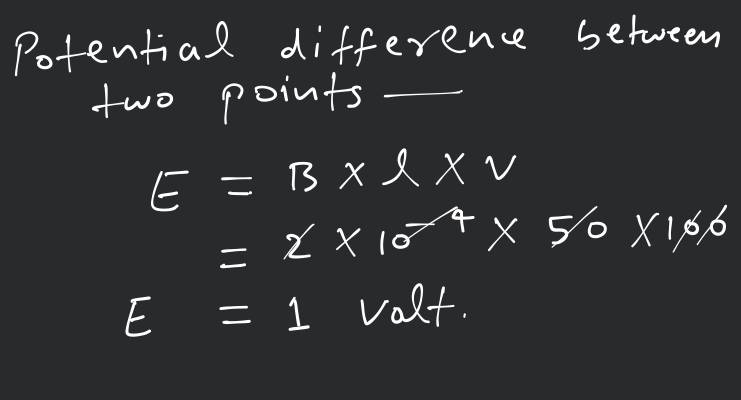 Potential difference between
two points —
E = B x l x v
= 2 x 10⁻⁴ x 50 x 100
E = 1 Valt.